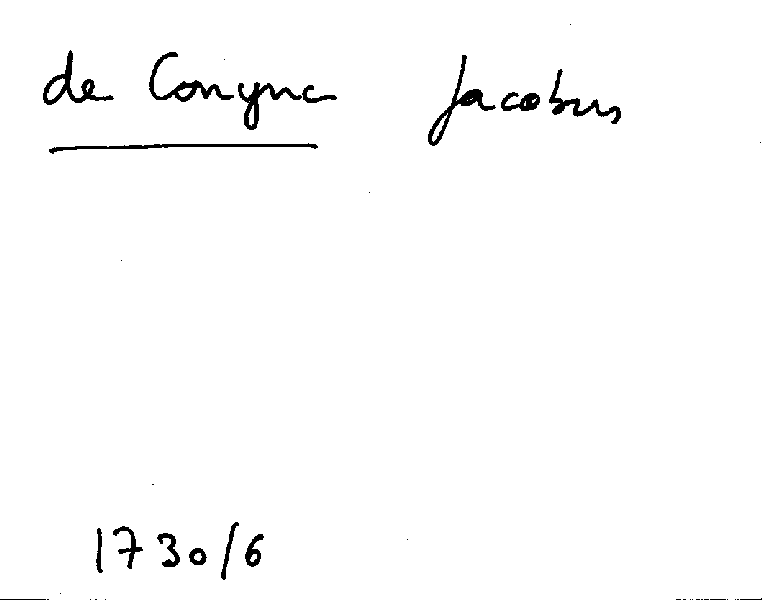 de Conync Jacobus
1730/6